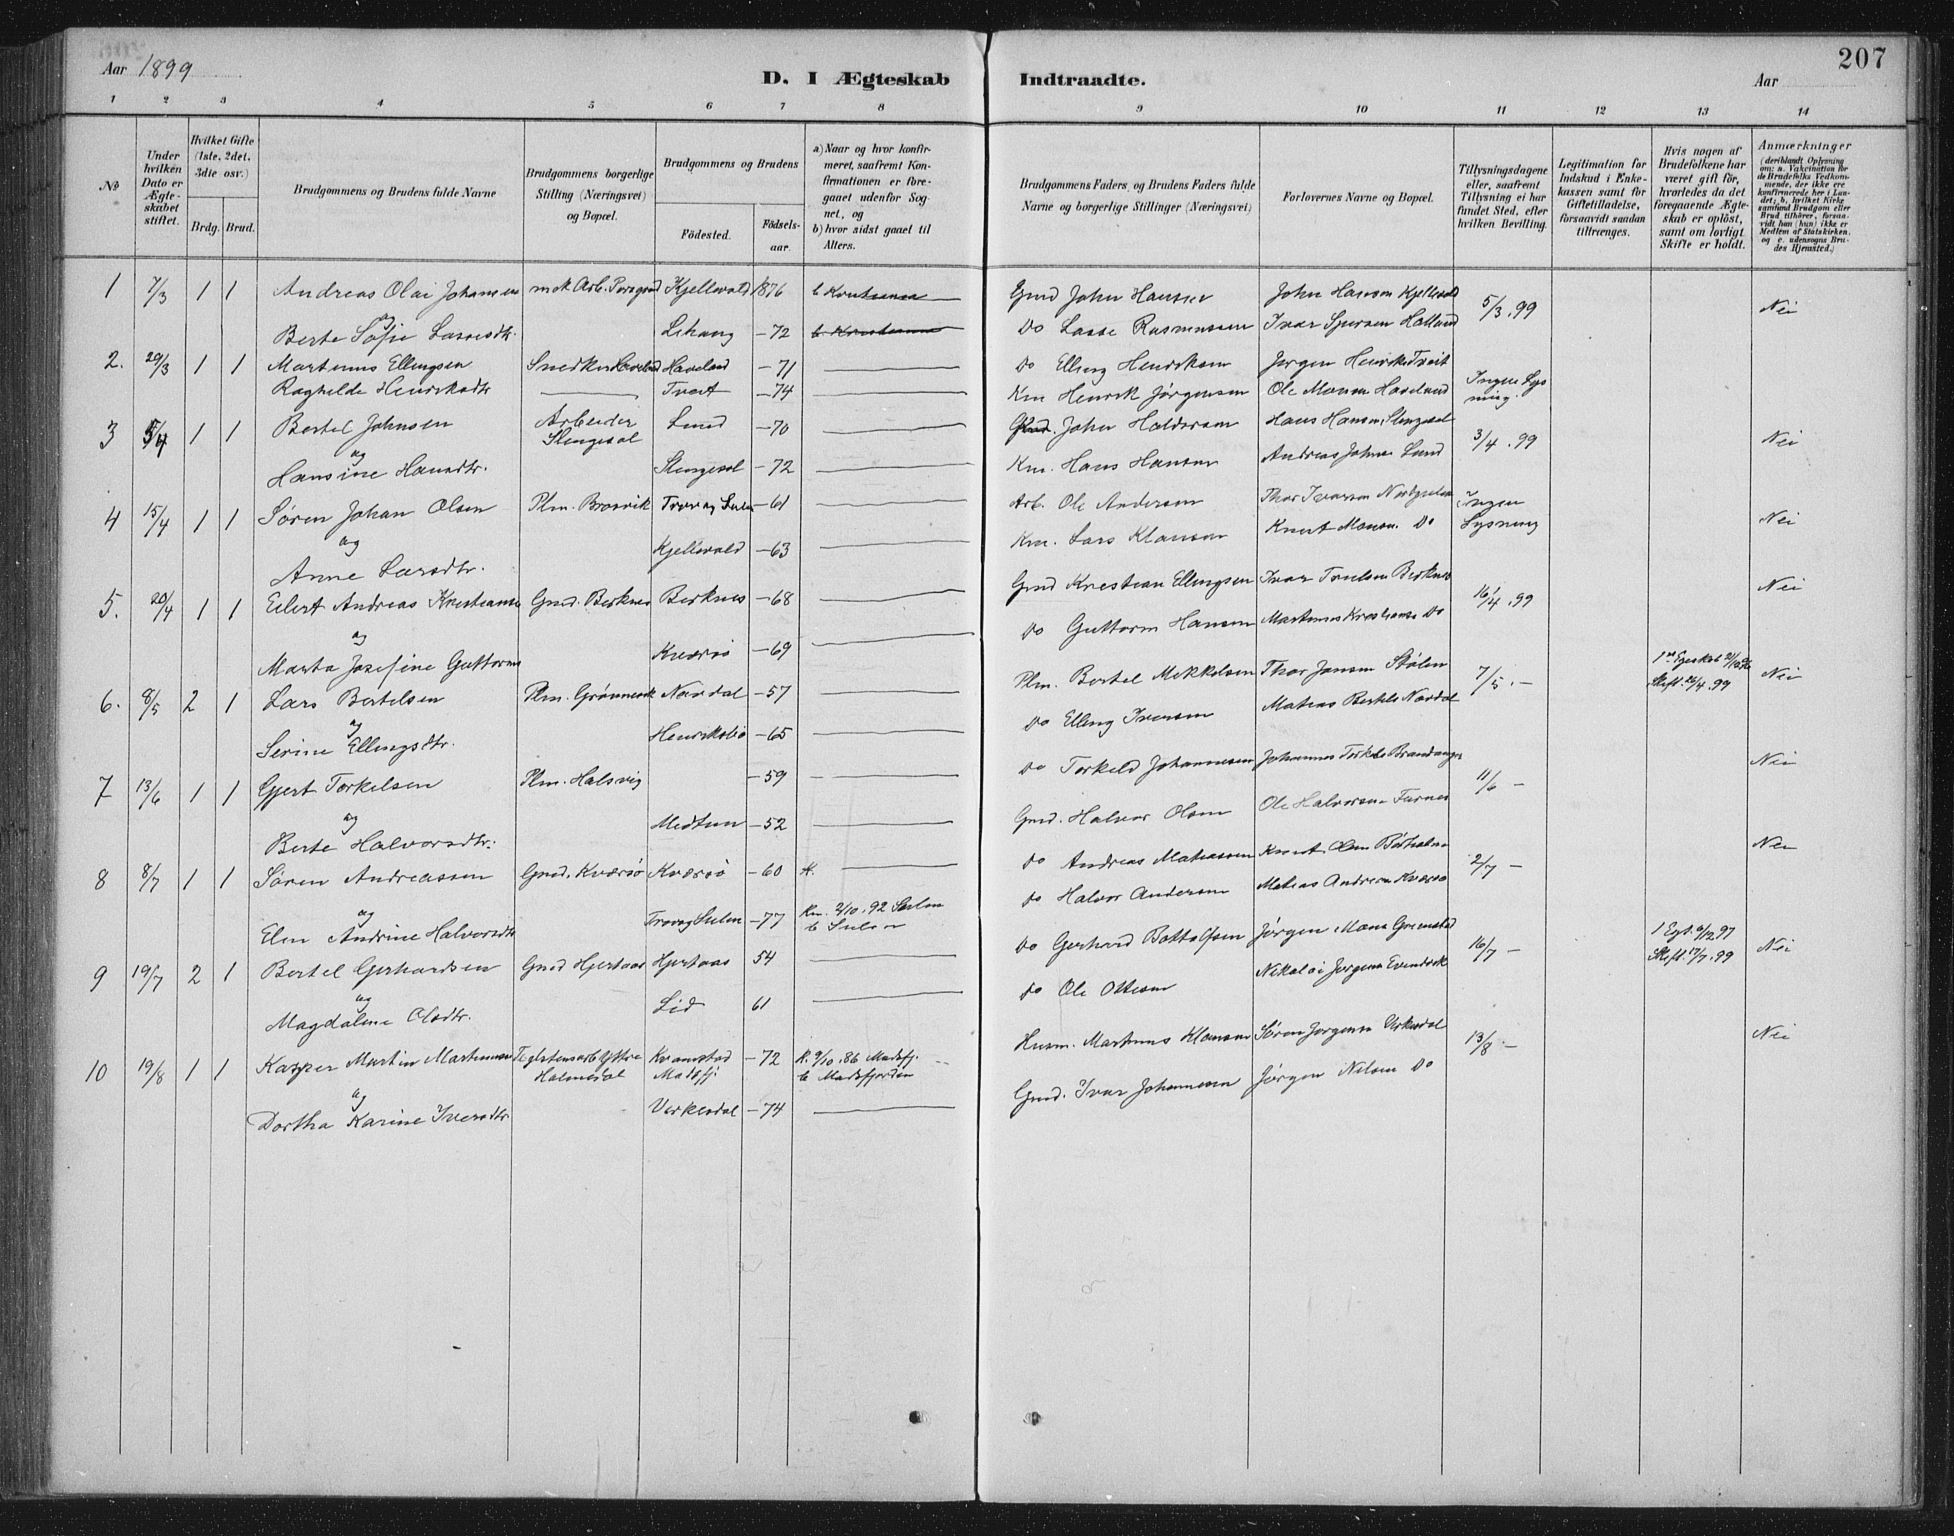 Aar 1899
D. I Ægteskab Indtraadte.
Aar
207
1 2 3 4 5 6 7 8 9 10 11 12 13 14
No
Under hvilken Dato er Ægteskabet stiftet.
Hvilket Gifte (1ste, 2det, 3die osv.)
Brdg. Brud.
Brudgommens og Brudens fulde Navne
Brudgommens borgerlige Stilling (Næringsvei) og Bopæl.
Brudgommens og Brudens
Födested.
Födselsaar.
a) Naar og hvor konfirmeret, saafremt Konfirmationen er foregaaet udenfor Sognet, og
b) hvor sidst gaaet til Alters.
Brudgommens Faders, og Brudens Faders fulde Navne og borgerlige Stillinger (Næringsvei)
Forlovernes Navne og Bopæl.
Tillysningsdagene eller, saafremt Tillysning ei har fundet Sted, efter hvilken Bevilling.
Legitimation for Indskud i Enkekassen samt for Giftetilladelse, forsaavidt saadan tiltrænges.
Hvis nogen af Brudefolkene har været gift för, hvorledes da det foregaaende Ægteskab er oplöst, samt om lovligt Skifte er holdt.
Anmærkninger (deriblandt Oplysning om: a. Vakcination for de Brudefolks Vedkommende, der ikke ere konfirmerede her i Landet; b. hvilket Kirkesamfund Brudgom eller Brud tilhörer, forsaavidt han (hun) ikke er Medlem af Statskirken, og c. udensogns Brudes Hjemsted.)
1 7/3 1 1 Andreas Olai Johansen Kjellevold 1876 Gmd John Hansen John Hanson Kjellevold 5/3.99 Nei
og
Berte Sofie Lassesdtr. Lihaug -72 Do Lasse Rasmussen Ivar Halland
2. 29/3 1 1 Martinus Ellingsen Snedker Haveland Haveland -71 Do Elling Henriksen Jørgen Henriks Tveit
Raghilde Henriksdtr Tveit -74 Km Henrik Jørgensen Ole Monsen Haveland Ingen Lysning.
3 5/4 1 1 Bertel Johnsen Arbeider Slengesol Lund -70 John Haldorsen Hans Hansen Slengesol 3/4.99 Nei
og
Hansine Hansdtr. Slengesol -72 Km. Hans Hansen Andreas Johns Lund
4 15/4 1 1 Søren Johan Olsen Plm. Brosvik -61 Arb. Ole Andersen Thor Ivarson Ingen Lysning Nei
og
Anne Larsdtr. Kjellevold -63 Km. Lars Klausen Knut Monsen Do
5. 20/4 1 1 Eilert Andreas Kristiansen Gmd. Berknes Berknes -68 Gmd Kristian Ellingsen Ivar Berknes 16/4.99 Nei
og
Marta Josefine Guttorms Kværsø -69 Do Guttorm Hansen Martinus Kristianse Do
6. 8/5 2 1 Lars Bertelsen Plm. Nordal -57 Plm. Bertel Mikkelsen Thor Jansen Stølen 7/5.- Skift. 26/4.99 Nei
og
Serine Ellingsdtr. -65 Do Elling Iversen Matias Bertels Nordal
7 13/6 1 1 Gjert Torkelsen Plm. Halsvig -59 Do Torkeld Johannesen Johannes Torkels Brandanger 11/6 - Nei
og
Berte Halvorsdtr. Midtun -52 Gmd. Halvor Olsen Ole Halvorsen Furnes
8 8/7 1 1 Søren Andreassen Gmd. Kværsø Kværsø -60 Do Andreas Matiassen Knut Olsen 2/7 - Nei
og
Elen Andrine Halvorsdtr -77 Kn. 2/10.92 Sulen b Sulen Do Halvor Andersen Matias Andreas Kværsø
9 19/7 2 1 Bertel Gerhardsen Gmd Hjertaas Hjertaas 54 Do Gerhard Bottolfsen Jørgen Mons Grimstad 16/7 - Skift. 17/7.99 Nei
og
Magdalene Olsdtr. Lid 61 Do Ole Ottesen Nikolai Jørgens Evendvik
10 19/8 1 1 Kasper Martin Martinussen Teglstensarb Yttre Holmedal Kvamstad Madsfj. -72 K. 3/10.86 Madsfj. b Madsfjorden Husm. Martinus Klausen Søren Jørgensen Virkesdal 13/8 - Nei
og
Dortha Karine Iversdtr. Virkesdal -74 Gmd. Ivar Johannesen Jørgen Nilsen Do